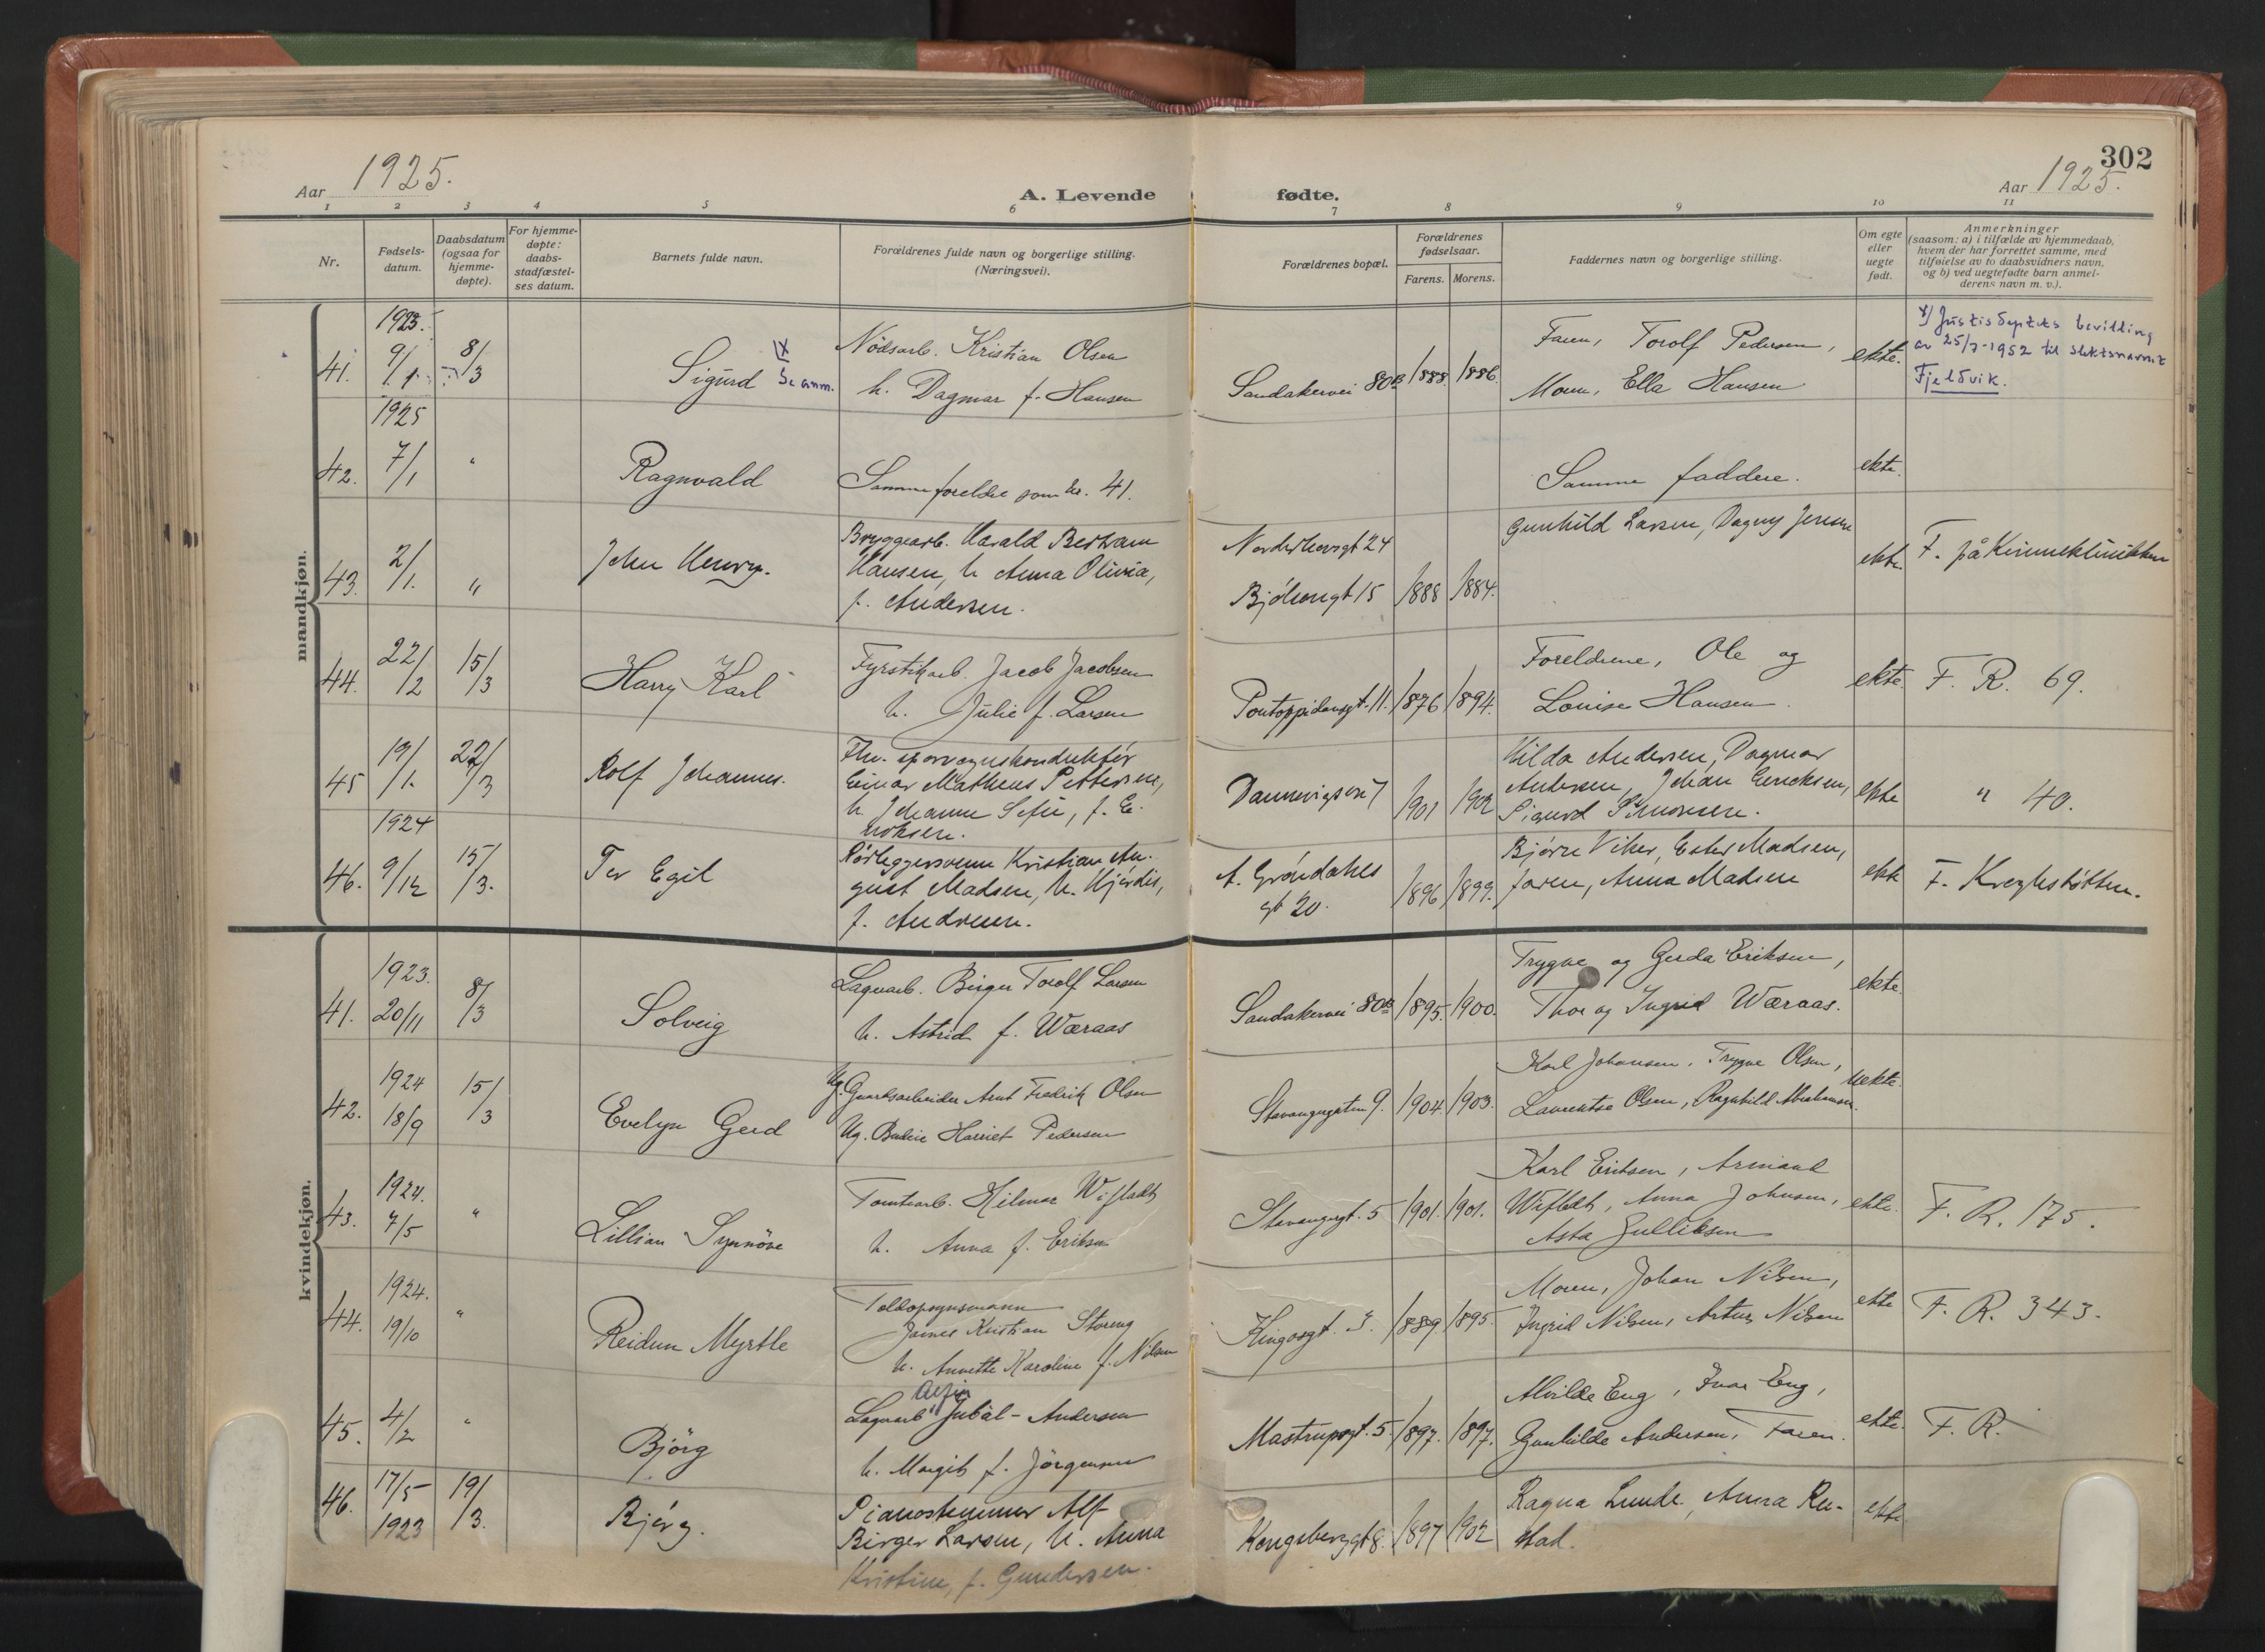 302
Aar 1925. A. Levende fødte. Aar 1925.
1 2 3 4 5 6 7 8 9 10 11
Nr. Fødsels-datum. Daabsdatum (ogsaa for hjemme-døpte). For hjemme-døpte: daabs-stadfæstel-ses datum. Barnets fulde navn. Forældrenes fulde navn og borgerlige stilling. (Næringsvei). Forældrenes bopæl. Forældrenes fødselsaar. Farens. Morens. Faddernes navn og borgerlige stilling. Om egte eller uegte født. Anmerkninger (saasom: a) i tilfælde av hjemmedaab, hvem der har forrettet samme, med tilføielse av to daabsvidners navn, og b) ved uegtefødte barn anmel-derens navn m. v.).
mandkjøn.
1923.
41. 9/1. 8/3 Sigurd x Se anm.
Nødsarb. Kristian Olsen
h. Dagmar f. Hansen
Sandakervei 80B 1888. 1886.
Faren, Torolf Pedersen,
Moren, Ella Hansen
ekte.
x) Justisdeptets bevilling
av 25/7-1952 til slektsnavnet
Fjeldvik.
1925
42. 7/1 " Ragnvald
Samme foreldre som nr. 41.
Samme faddere.
ekte.
43. 2/1. " John Henry.
Bryggearb. Harald Bertram
Hansen, h. Anna Olivia,
f. Andersen.
Norderhovsgt 24
Bjølsengt 15 1888 1884.
Gunhild Larsen, Dagny Jensen
ekte.
F. på Kvinneklinikken
44. 22/2 15/3 Harry Karl
Fyrstikarb. Jacob Jacobsen
h. Julie f. Larsen
Pontoppidansgt. 11. 1876 1894.
Foreldrene, Ole og
Louise Hansen.
ekte.
F. R. 69.
45 19/1. 22/3 Rolf Johannes.
Fhv. sporvognskonduktør
Einar Matheus Pettersen,
h. Johanne Sofie, f. E-
noksen.
Dannevigsvn 7 1901 1902
Hilda Andersen, Dagmar
Andersen, Johan Enocksen,
Sigurd Simonsen.
ekte
" 40.
1924
46. 9/12 15/3. Tor Egil
Rørleggersvenn Kristian Au-
gust Madsen, h. Hjørdis,
f. Andresen.
A. Grøndahls
gt 20. 1896 1899.
Bjørn Viker, Ester Madsen,
faren, Anna Madsen
ekte
F. Kreghstøtten.
kvindekjøn.
1923.
41. 20/11 8/3 Solveig
Lagerarb. Birger Torolf Larsen
h. Astrid f. Wæraas
Sandakervei 80B 1895. 1900.
Trygve og Gerda Eriksen,
Thor og Ingrid Wæraas.
ekte.
1924
42. 18/9 15/3 Evelyn Gerd
Ug. Arnt Fredrik Olsen
Ug. Harriet Pedersen
Stavangergaten 9. 1904. 1903.
Karl Johansen, Trygve Olsen,
Laurentse Olsen, Ragnhild Abrahamsen.
uekte.
1924.
43. 7/5 " Lillian Synnöve
Tomtearb. Hilmar Wifladt
h. Anna f. Eriksen
Stavangergt. 5 1901. 1901.
Karl Eriksen, Armand
Wifladt, Anna Johnsen,
Asta Gulliksen
ekte.
F. R. 175.
1924.
44. 19/10 " Reidun Myrtle
Toldopsynsmann
James Kristian Storeng
h. Annette Karoline f. Nilsen
Kingosgt. 3. 1889. 1895.
Moren, Johan Nilsen,
Ingrid Nilsen, Artur Nilsen
ekte
F. R. 343.
45. 4/2 " Bjørg
Lagerarb. Jubal-Andersen
h. Margit f. Jörgensen
Mastrupsgt. 5. 1897. 1897.
Alvilde Eng, Ivar Eng,
Gunhilde Andersen, Faren.
ekte.
F. R.
46. 17/5 1923 19/3. Bjørg.
Pianostemmer Alf
Birger Larsen, h. Anna
Kristine, f. Gundersen.
Kongsberggt 8. 1897 1902
Ragna Lunde, Anna Ru-
stad.
ekte